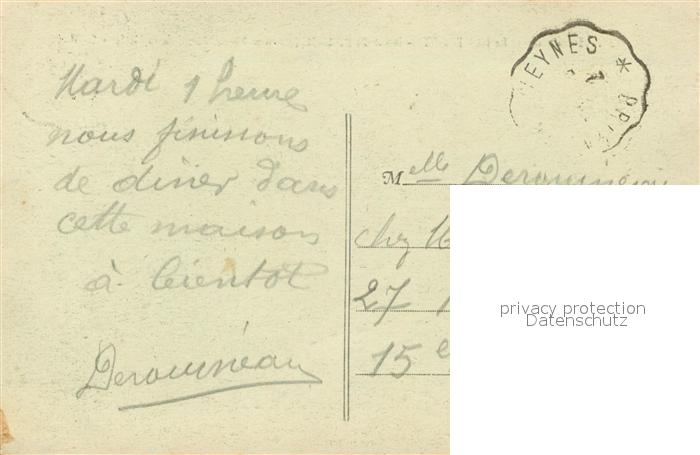 Mardi 1 heure
nous finissons
de diner dans
cette maison
à bientot
Derouineau
EYNES *
Melle Derouineau
chez
27
15e
privacy protection
Datenschutz